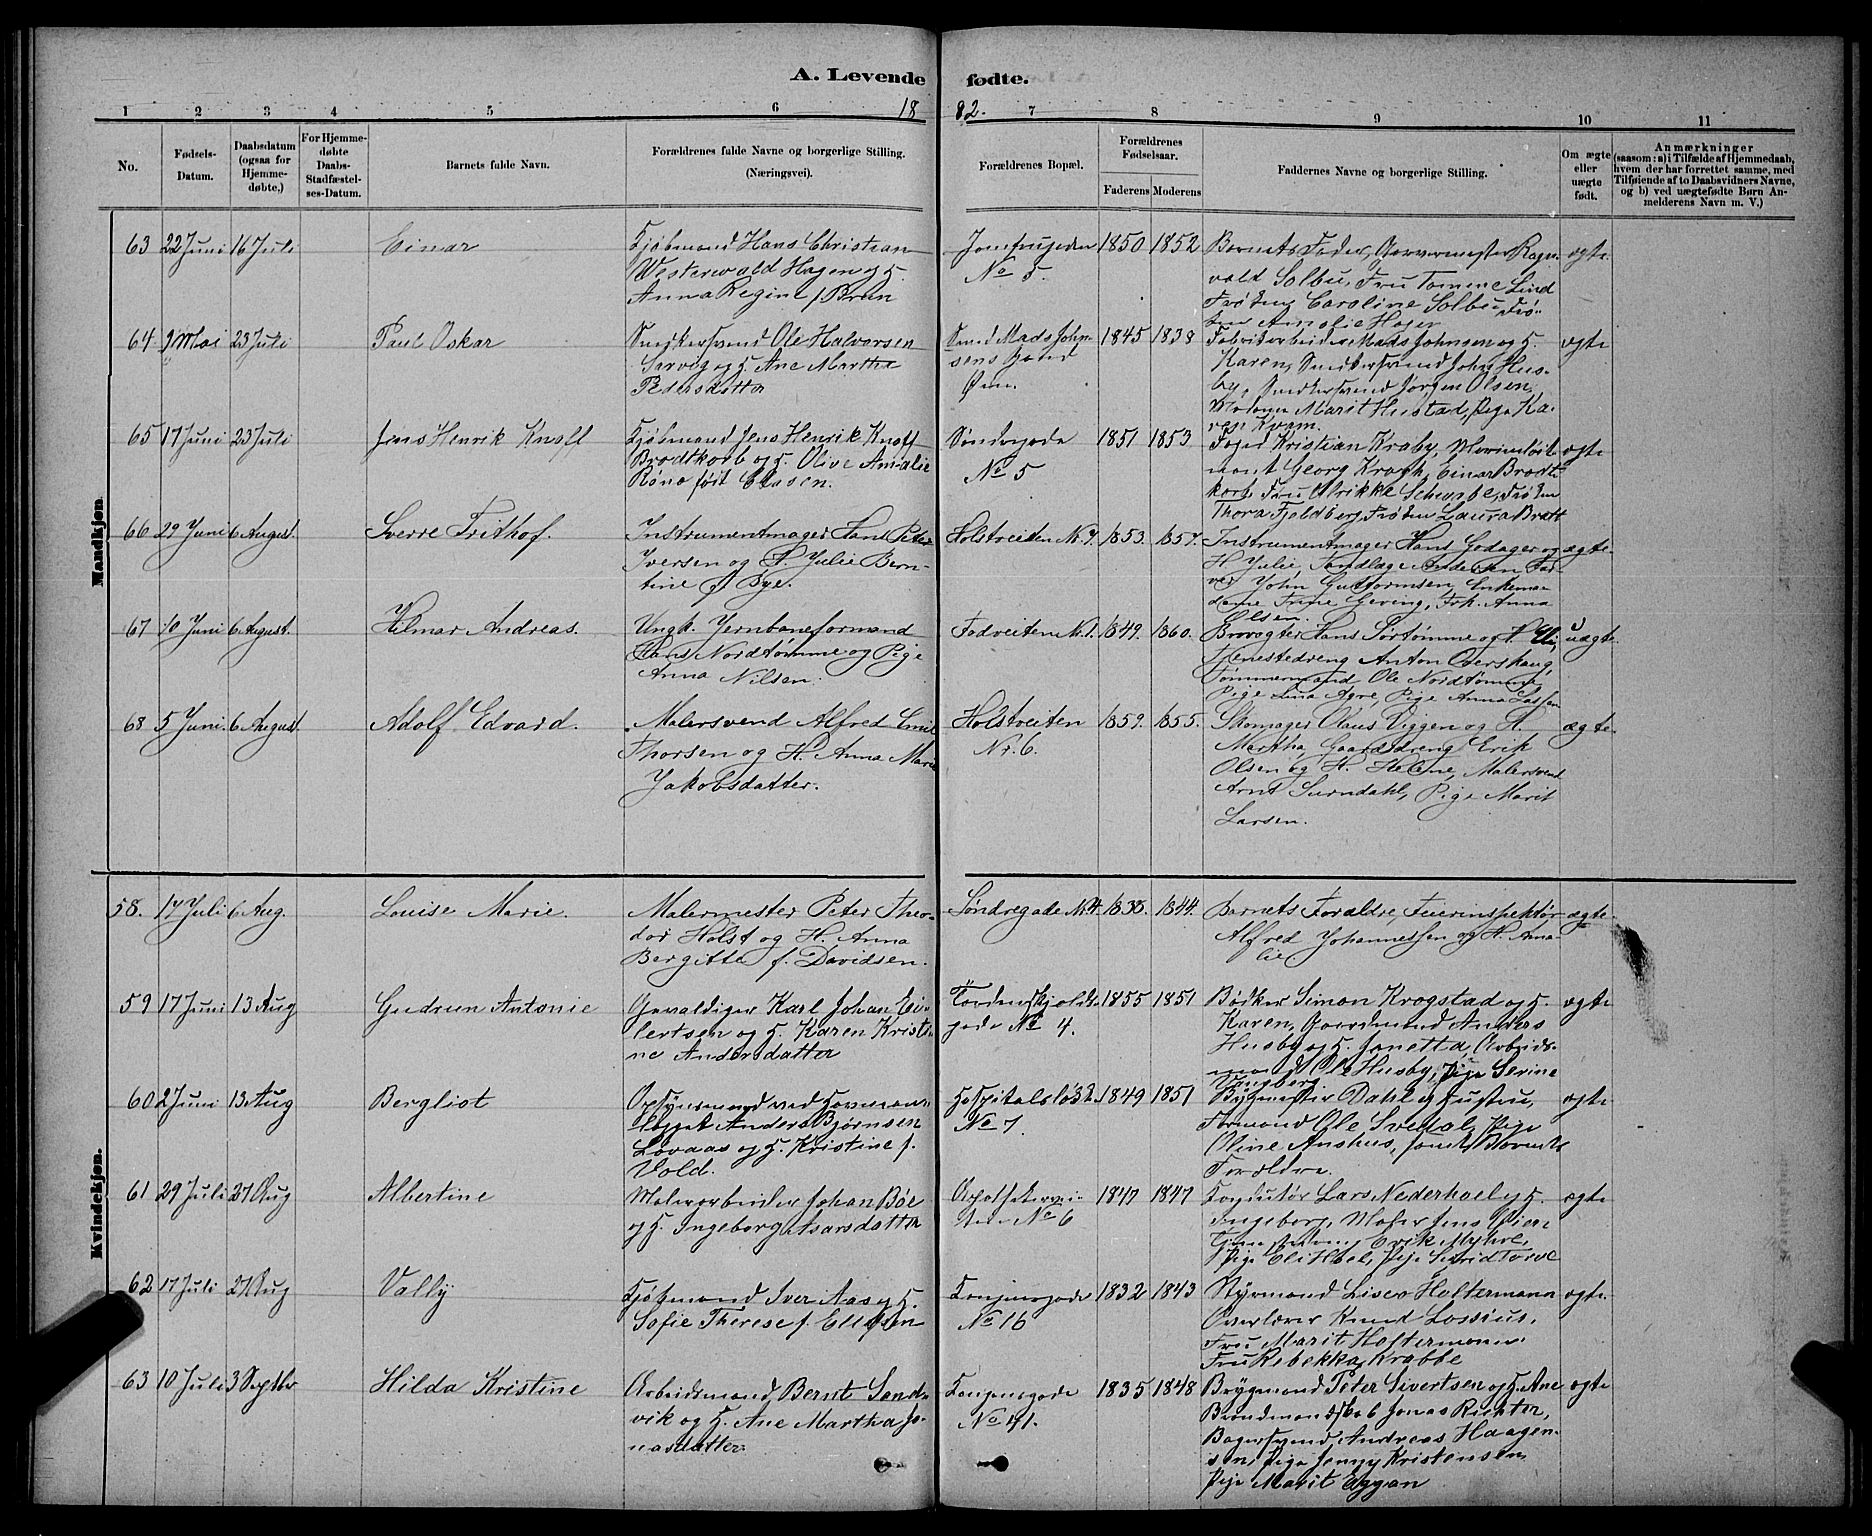 A. Levende fødte.
1882.
1 2 3 4 5 6 7 8 9 10 11
No.
Fødsels-Datum.
Daabsdatum (ogsaa for Hjemme-døbte,)
For Hjemme-døbte Daabs-Stadfæstel-ses-Datum.
Barnets fulde Navn.
Forældrenes fulde Navne og borgerlige Stilling. (Næringsvei).
Forældrenes Bopæl.
Forældrenes Fødselsaar.
Faderens Moderens
Faddernes Navne og borgerlige Stilling.
Om ægte eller uægte født.
Anmærkninger
(saasom: a) i Tilfælde af Hjemmedaab,
hvem der har forrettet samme, med
Tilføiende af to Daabsvidners Navne,
og b) ved uægtefødte Børn An-
melderens Navn m. V.)
Mandkjøn
63 22 Juni 16 Juli
Einar
Kjøbmand Hans Christian
Westerwald Hagen og H.
Anna Regine f. Brun
Jomfrugaden
No 5.
1850 1852
Barnets Fader, Garvermester Ragn-
vald Solbu, Fru Tomine Lind
Frøken Caroline Solbu Frø-
ken Amalie Hagen
ægte
64 9 Mai 23 Juli
Paul Oskar
Snedkersvend Ole Halvorsen
Sarvig og H. Ane Martha
Petersdatter
Smed Mads John-
sens Gaard
Øen.
1845 1838
Fabrikarbeider Mads Johnsen og H.
Karen, Snedkersvend John Hus-
by, Snedkersvend Jørgen Olsen,
Madam Marit Hustad, Pige Ka-
ren Kvam.
ægte
65 17 Juni 23 Juli
Jens Henrik Knoff
Kjøbmand Jens Henrik Knoff
Brodtkorb og H. Olive Amalie
Røno født Clasen.
Søndregade
No 5
1851 1853
Foged Kristian Kraby, Marineløit-
nant Georg Kragh, Einar Brodt-
korb, Fru Ulrikke Schwabe, Frøken
Thora Fjeldberg, Frøken Laura Bratt
ægte
66 29 Juni 6 August.
Sverre Frithof.
Instrumentmager Hans Peter
Iversen og H. Julie Bern-
tine f. Bye.
Holstveiten Nr. 9.
1853. 1857.
Instrumentmager Hans Godager og
H Julie, Tandlæge Andersen Far-
ver John Guttormsen, Enkema-
dame Trine Geving, Frk. Anna
Olsen.
ægte.
67 10 Juni 6 August.
Hilmar Andreas.
Ungk. Jernbaneformand
Hans Nordtømme og Pige
Anna Nilsen.
Fodveiten Nr. 1.
1849. 1860.
Brovogter Hans Sørtømme og H Eli,
Tjenestedreng Anton Overskaug,
Tømmermand Ole Nordtømme
Pige Lina Agre, Pige Anna Lassen
uægte.
68 5 Juni. 6 August.
Adolf Edvard.
Malersvend Alfred Emil
Thorsen og H. Anna Marie
Jakobsdatter.
Holstveiten
Nr. 6.
1859. 1855.
Skomager Olaus Viggen og H.
Martha, Gaardsdreng Erik
Olsen og H. Helene, Malersvend
Arnt Surndahl, Pige Marit
Larsen.
ægte.
Kvindekjøn.
58. 17 Juli 6 Aug.
Louise Marie.
Malermester Peter Theo-
dor Holst og H. Anna
Bergitte f. Davidsen.
Søndregade Nr. 4.
1838. 1844.
Barnets Forældre, Feierinspektør
Alfred Johannessen og H. Ama-
lie
ægte.
59 17 Juni 13 Aug
Gudrun Antonie
Gevaldiger Karl Johan Ei-
lertsen og H. Karen Kristi-
ne Andersdatter
Tordenskjolds
gade No 4.
1855 1851
Bødker Simon Krogstad og H.
Karen, Gaardmand Anders
Husby og H. Jonetta, Arbeids-
mand Ole Husby, Pige Sevine
ægte
60 2 Juni 13 Aug
Bergliot
Opsynsmand ved Havnean-
lægget Anders Bjørnsen
Lovaas og H. Kristine f.
Vold.
Hospitalsløkk.
No 7.
1849 1851
Bygmester Dahl og Hustru,
Formand Ole Svedal, Pige
Oline Aushus, samt Barnets
Forældre.
ægte
61 29 Juli 27 Aug
Albertine
Malerarbeider Johan Bøe
og H. Ingeborg Asarsdatter
Apothekervei-
ten No 6
1847 1847
Konduktør Lars Nederhoel og H.
Ingeborg, Maler Jens Øien,
Tjenestedreng Erik Myhre,
Pige Eli Hoel, Pige Sigrid Torve
ægte
62 17 Juli 27 Aug
Vally
Kjøbmand Iver Aas og H.
Sofie Therese f. Ellefsen
Kongensgade
No 16
1832 1843
Styrmand Liseo Holtermann
Overlærer Knud Lossius,
Fru Marit Holtermann
Fru Rebekka Krabbe
ægte
63 10 Juli 3 Septbr
Hilda Kristine
Arbeidsmand Bernt Sand-
vik og H. Ane Martha Jo-
nasdatter
Kongensgade
No 41.
1835 1848
Brygmand Peter Sivertsen og H. Ane
Brandmandskab Jonas Richter,
Bagersvend Andreas Haagen-
sen, Pige Jenny Kristensen,
Pige Marit Eggan
ægte